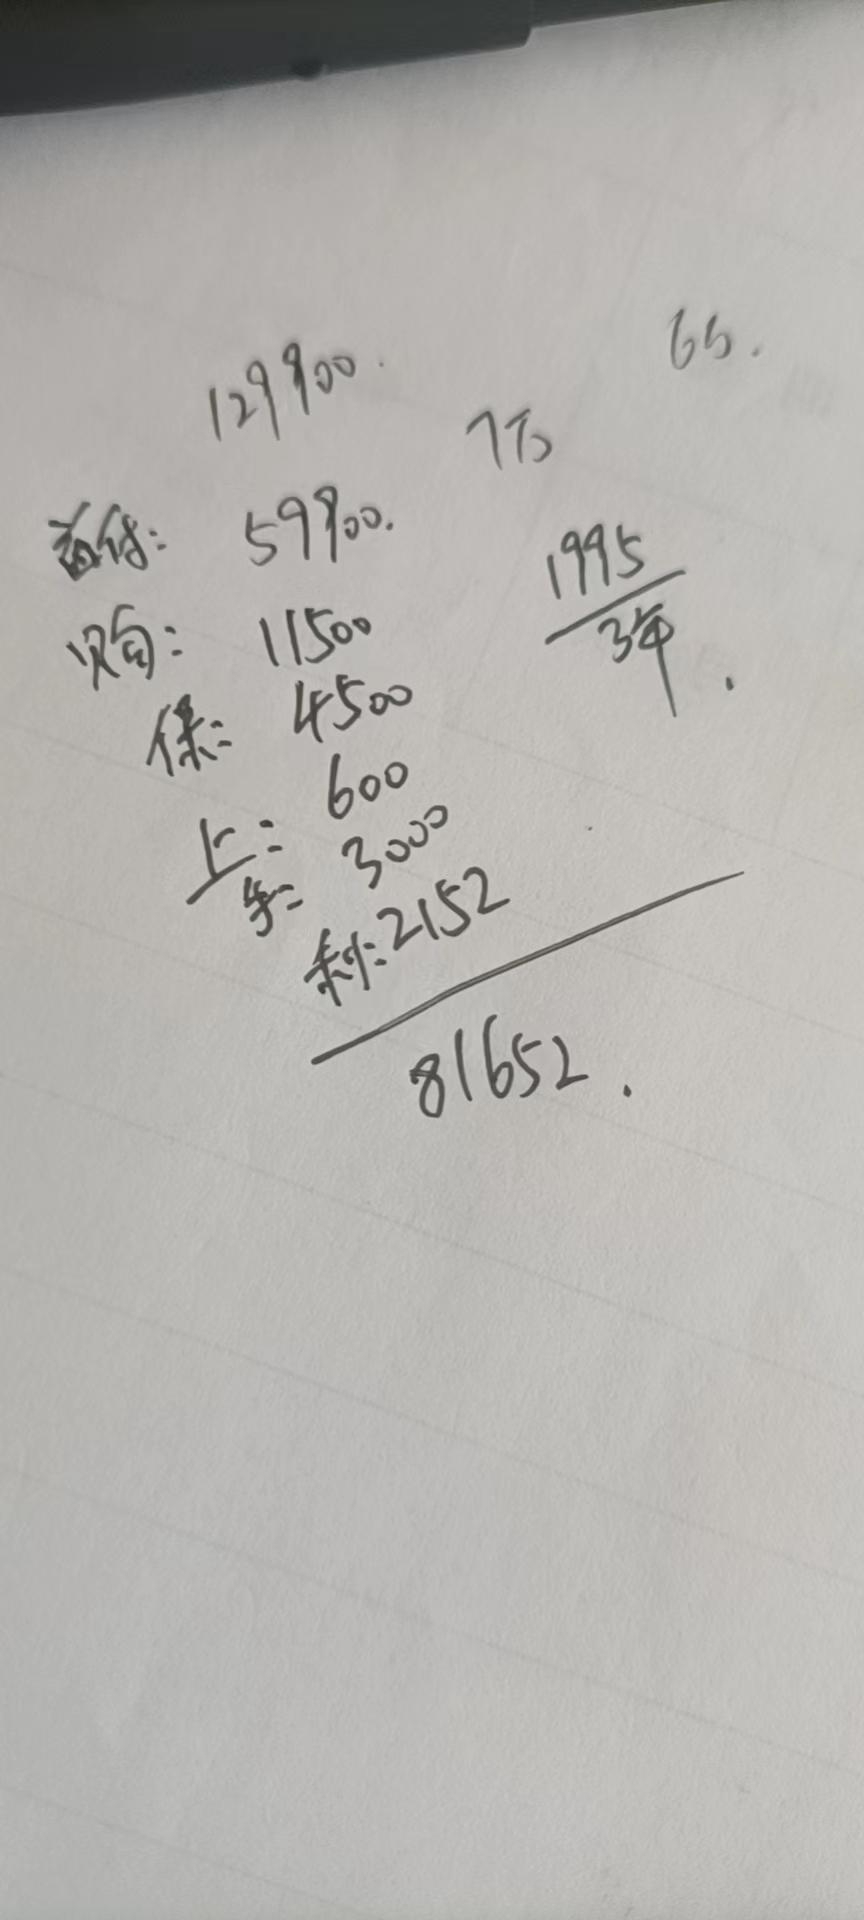 65.
129900.
7万
首付: 59900.
1995
3年.
购: 11500
保: 4500
上: 600
: 3000
利: 2152
81652.